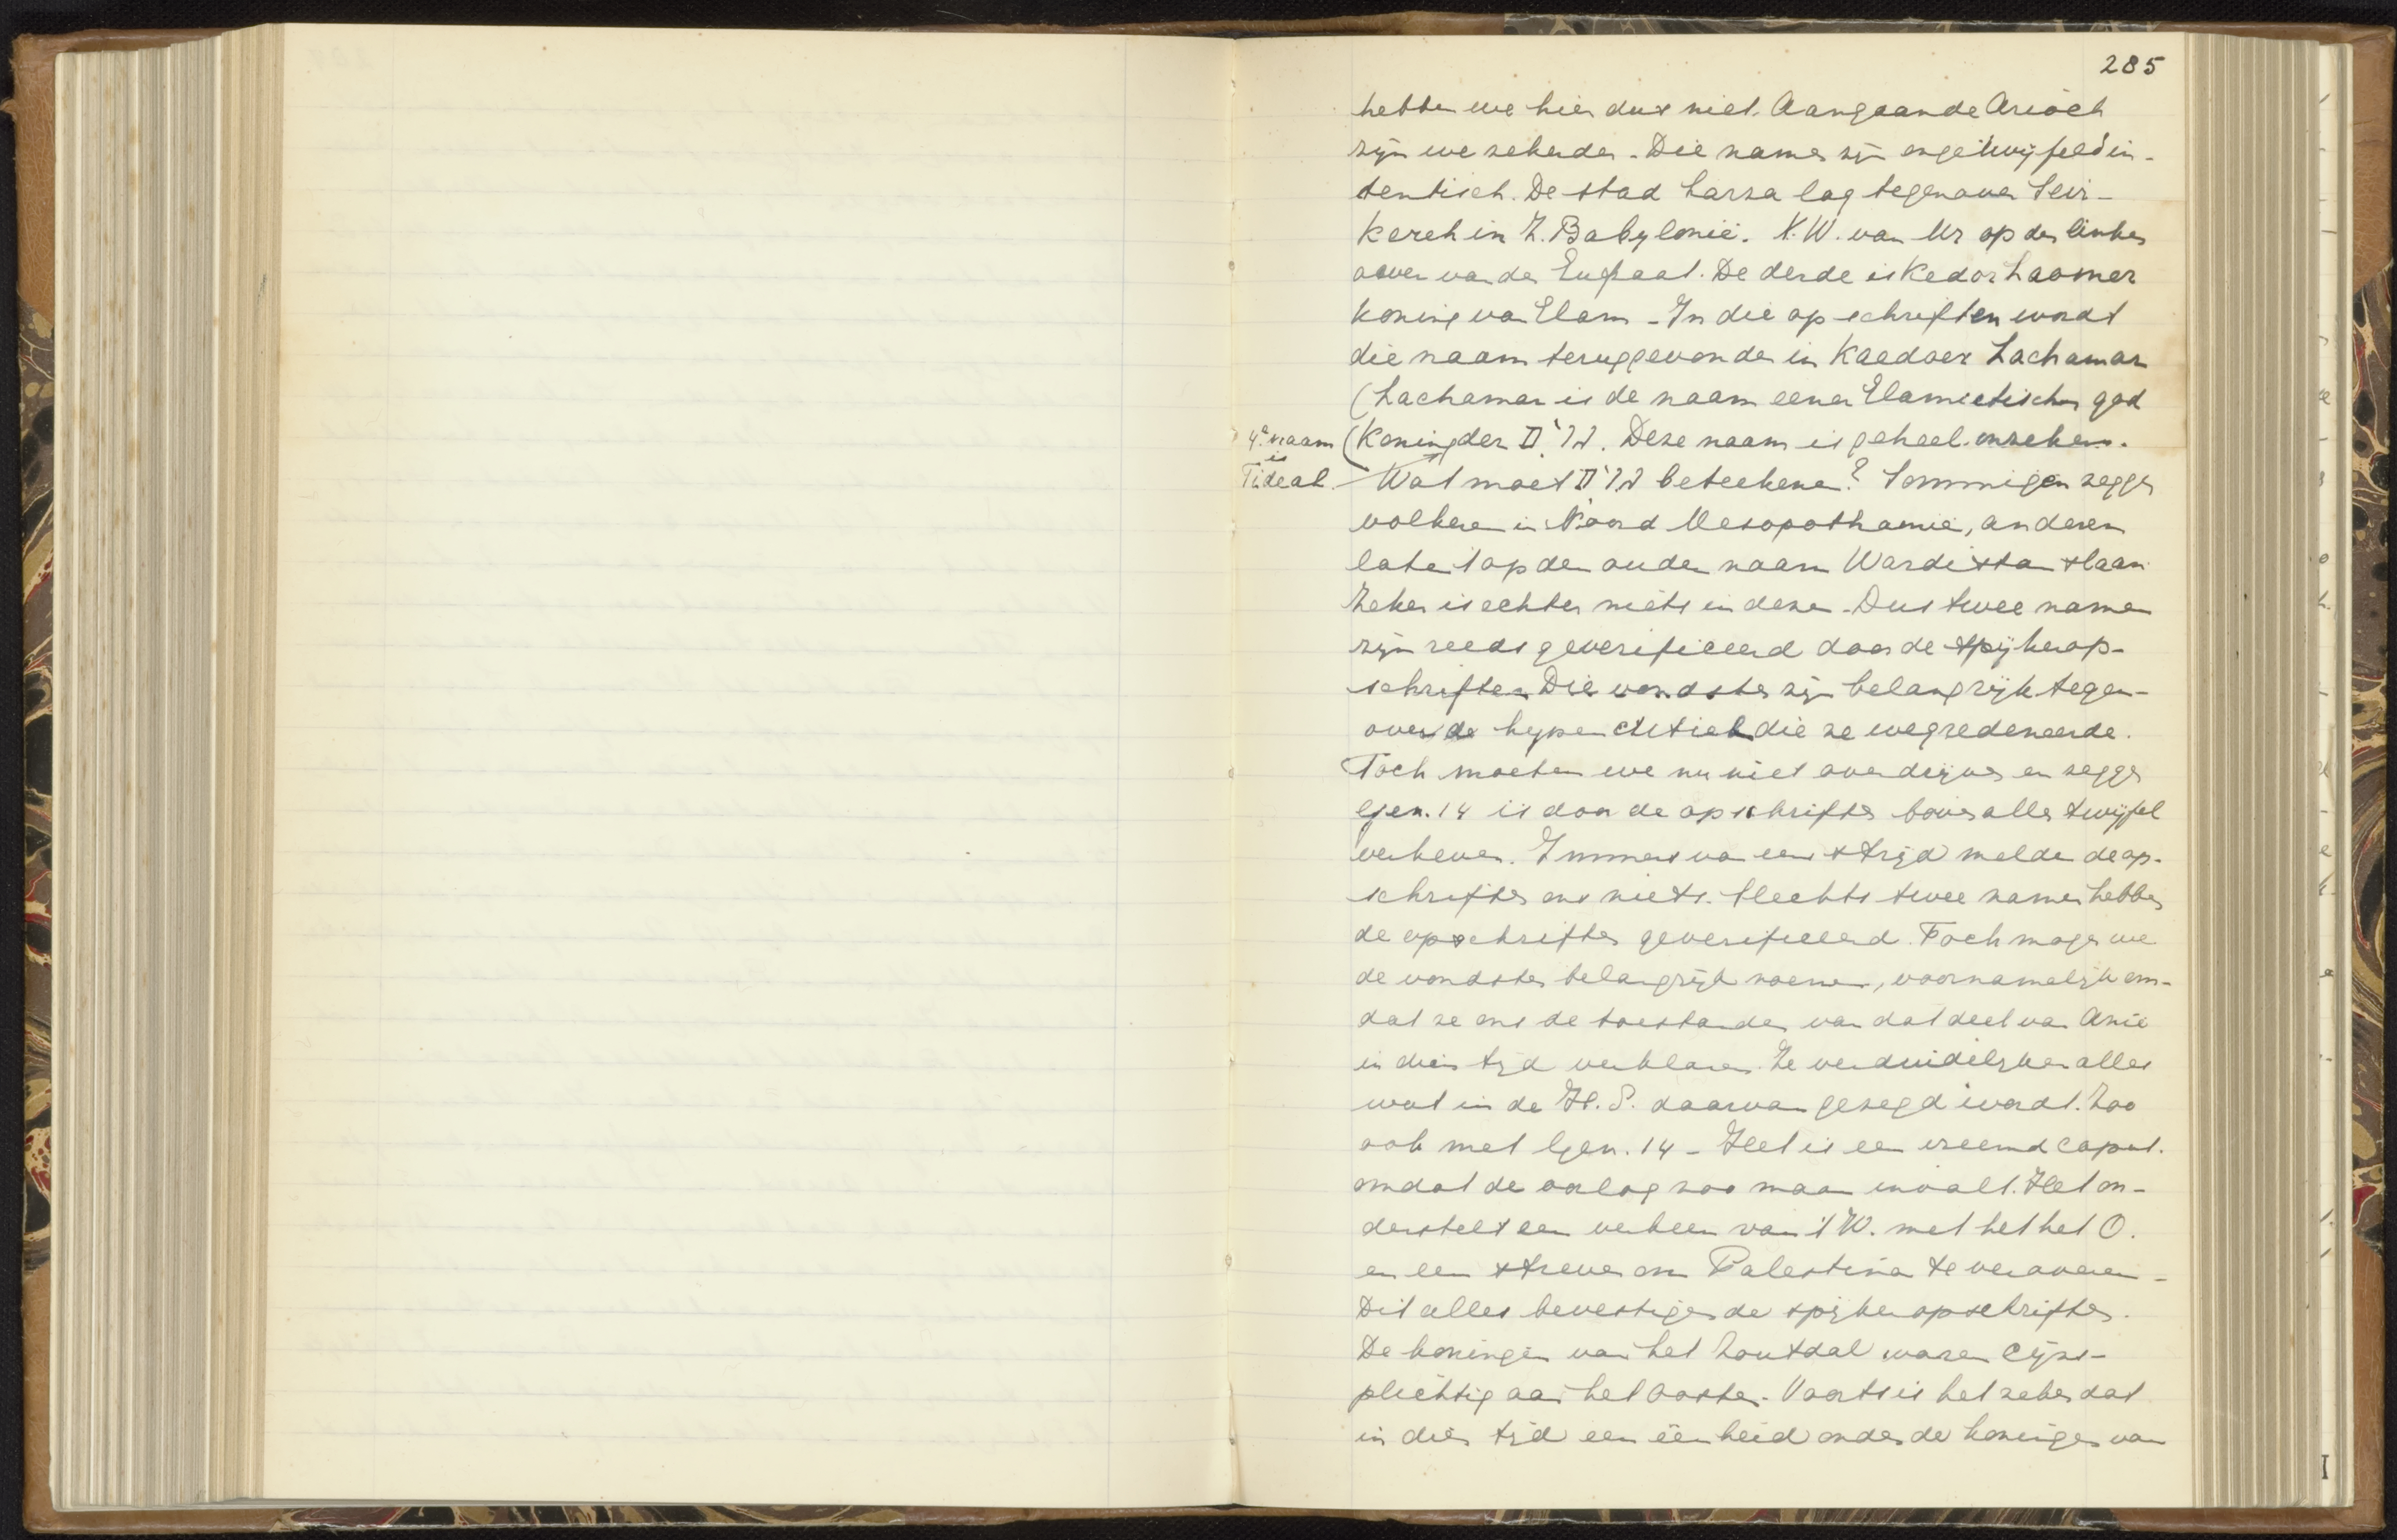 285
hebben we hier dus niet. Aangaande Arioch
zijn we zekerder. Die namen zijn ongetwijfeld in-
dentisch. De stad Larsa lag tegenover Seir-
kereh in Z. Babylonië. N.W. van Ur op den linker
oever van den Eufraat. De derde is Kedor Laomer
koning van Elam - In die opschriften wordt
die naam teruggevonden in Kaedoer Lachamar
(Lachamar is de naam eener Elamietischen god
4e naam is Tideal.
(Koning der גוים. Deze naam is geheel onzeker.
Wat moet גוים beteekenen? Sommigen zeggen
volkeren in Noord Mesopothamië, anderen
laten 't op den ouden naam Wardistan slaan
Zeker is echter niets in deze. Dus twee namen
zijn reeds geverifieerd door de spijkerop-
schriften Die vondsten zijn belangrijk tegen-
over de hypercritiek die ze wegredeneerde.
Toch moeten we nu niet overdrijven en zeggen
Gen. 14 is door de opschriften boven allen twijfel
verheven. Immers van een strijd melden de op-
schriften ons niets. Slechts twee namen hebben
de opschriften geverifieerd. Toch mogen we
de vondsten belangrijk noemen, voornamelijk om-
dat ze ons de toestanden van dat deel van Azië
in dien tijd verklaren. Ze verduidelijken alles
wat in de H.S. daarvan gezegd wordt. Zoo
ook met Gen. 14 - Het is een vreemd caput.
omdat de oorlog zoo maar invalt. Het on-
derstelt een verkeer van 't W. met het het O.
en een streven om Palestina te veroveren -
Dit alles bevestigen de spijkeropschriften.
De koningen van het Zoutdal waren cijns-
plichtig aan het Oosten. Voorts is het zeker dat
in dien tijd een eenheid onder de koningen van